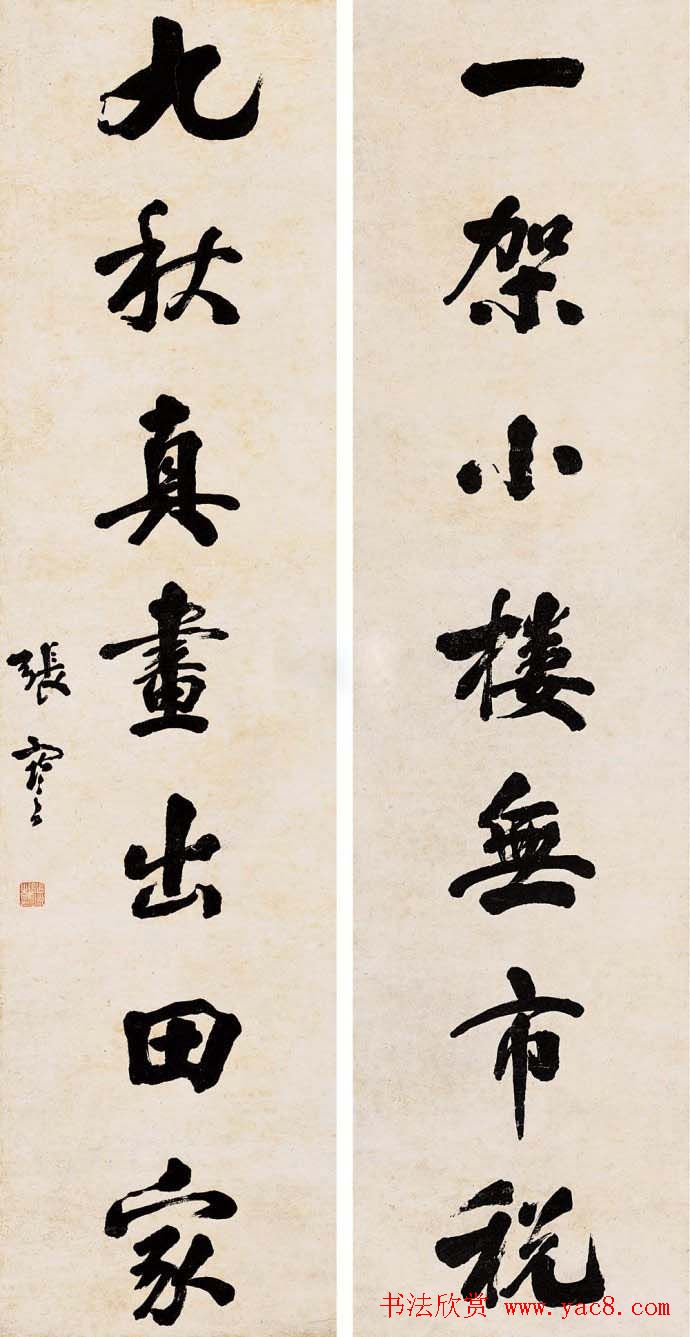 一架小楼無市税
九秋真畫出田家
張謇
书法欣赏 www.yac8.com